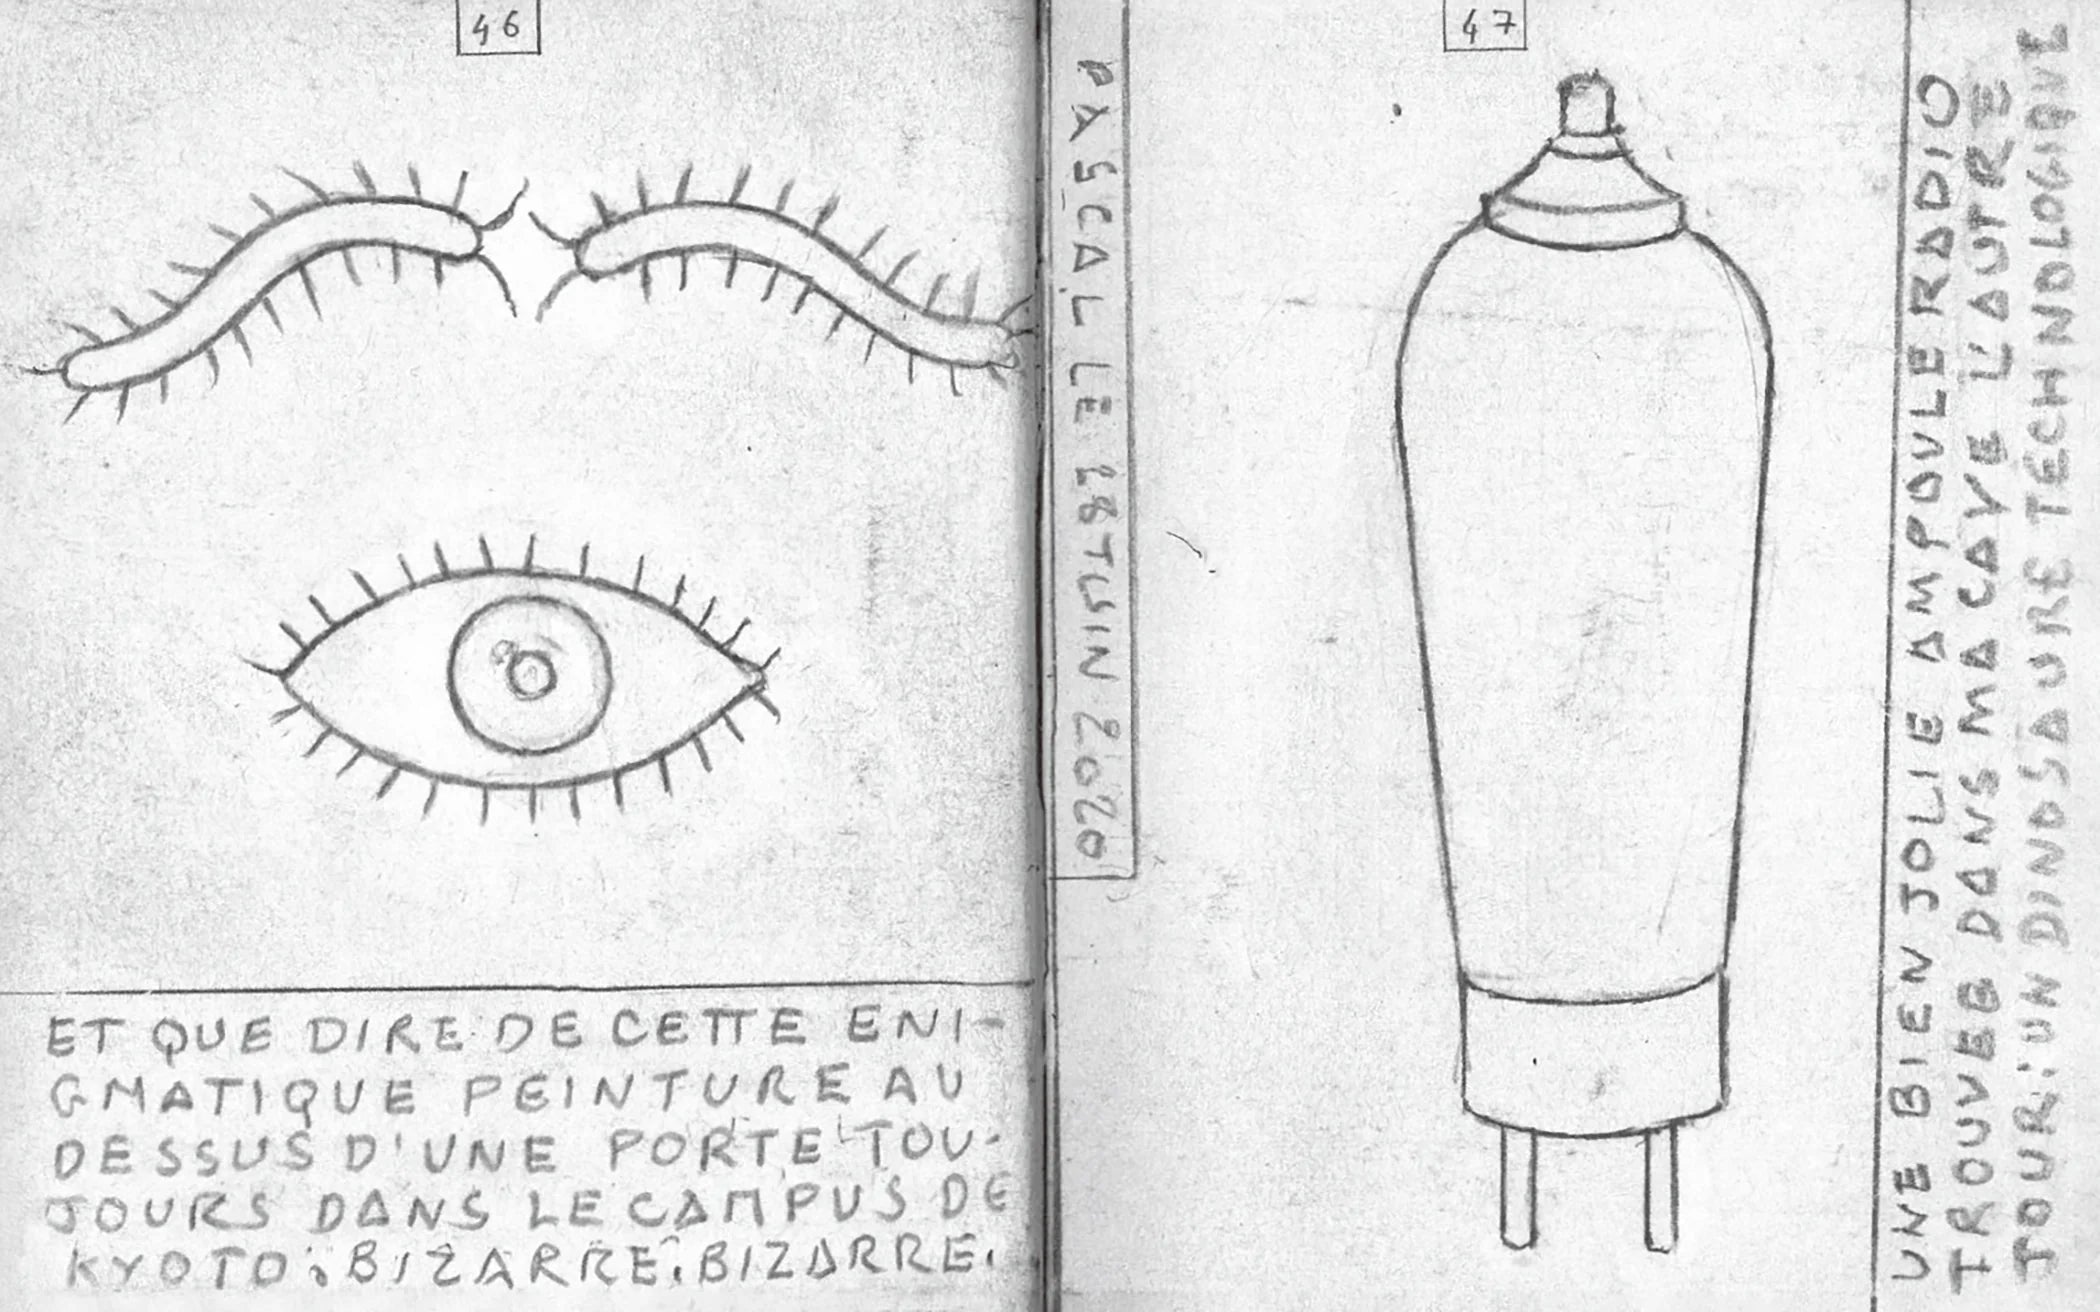 46
ET QUE DIRE DE CETTE ENI-
GMATIQUE PEINTURE AU
DESSUS D'UNE PORTE TOU-
JOURS DANS LE CAMPUS DE
KYOTO: BIZARRE. BIZARRE.
PASCAL LE 28 JUIN 2020
47
UNE BIEN JOLIE AMPOULE RADIO
TROUVEE DANS MA CAVE L'AUTRE
JOUR: UN DINOSAURE TECHNOLOGIQUE